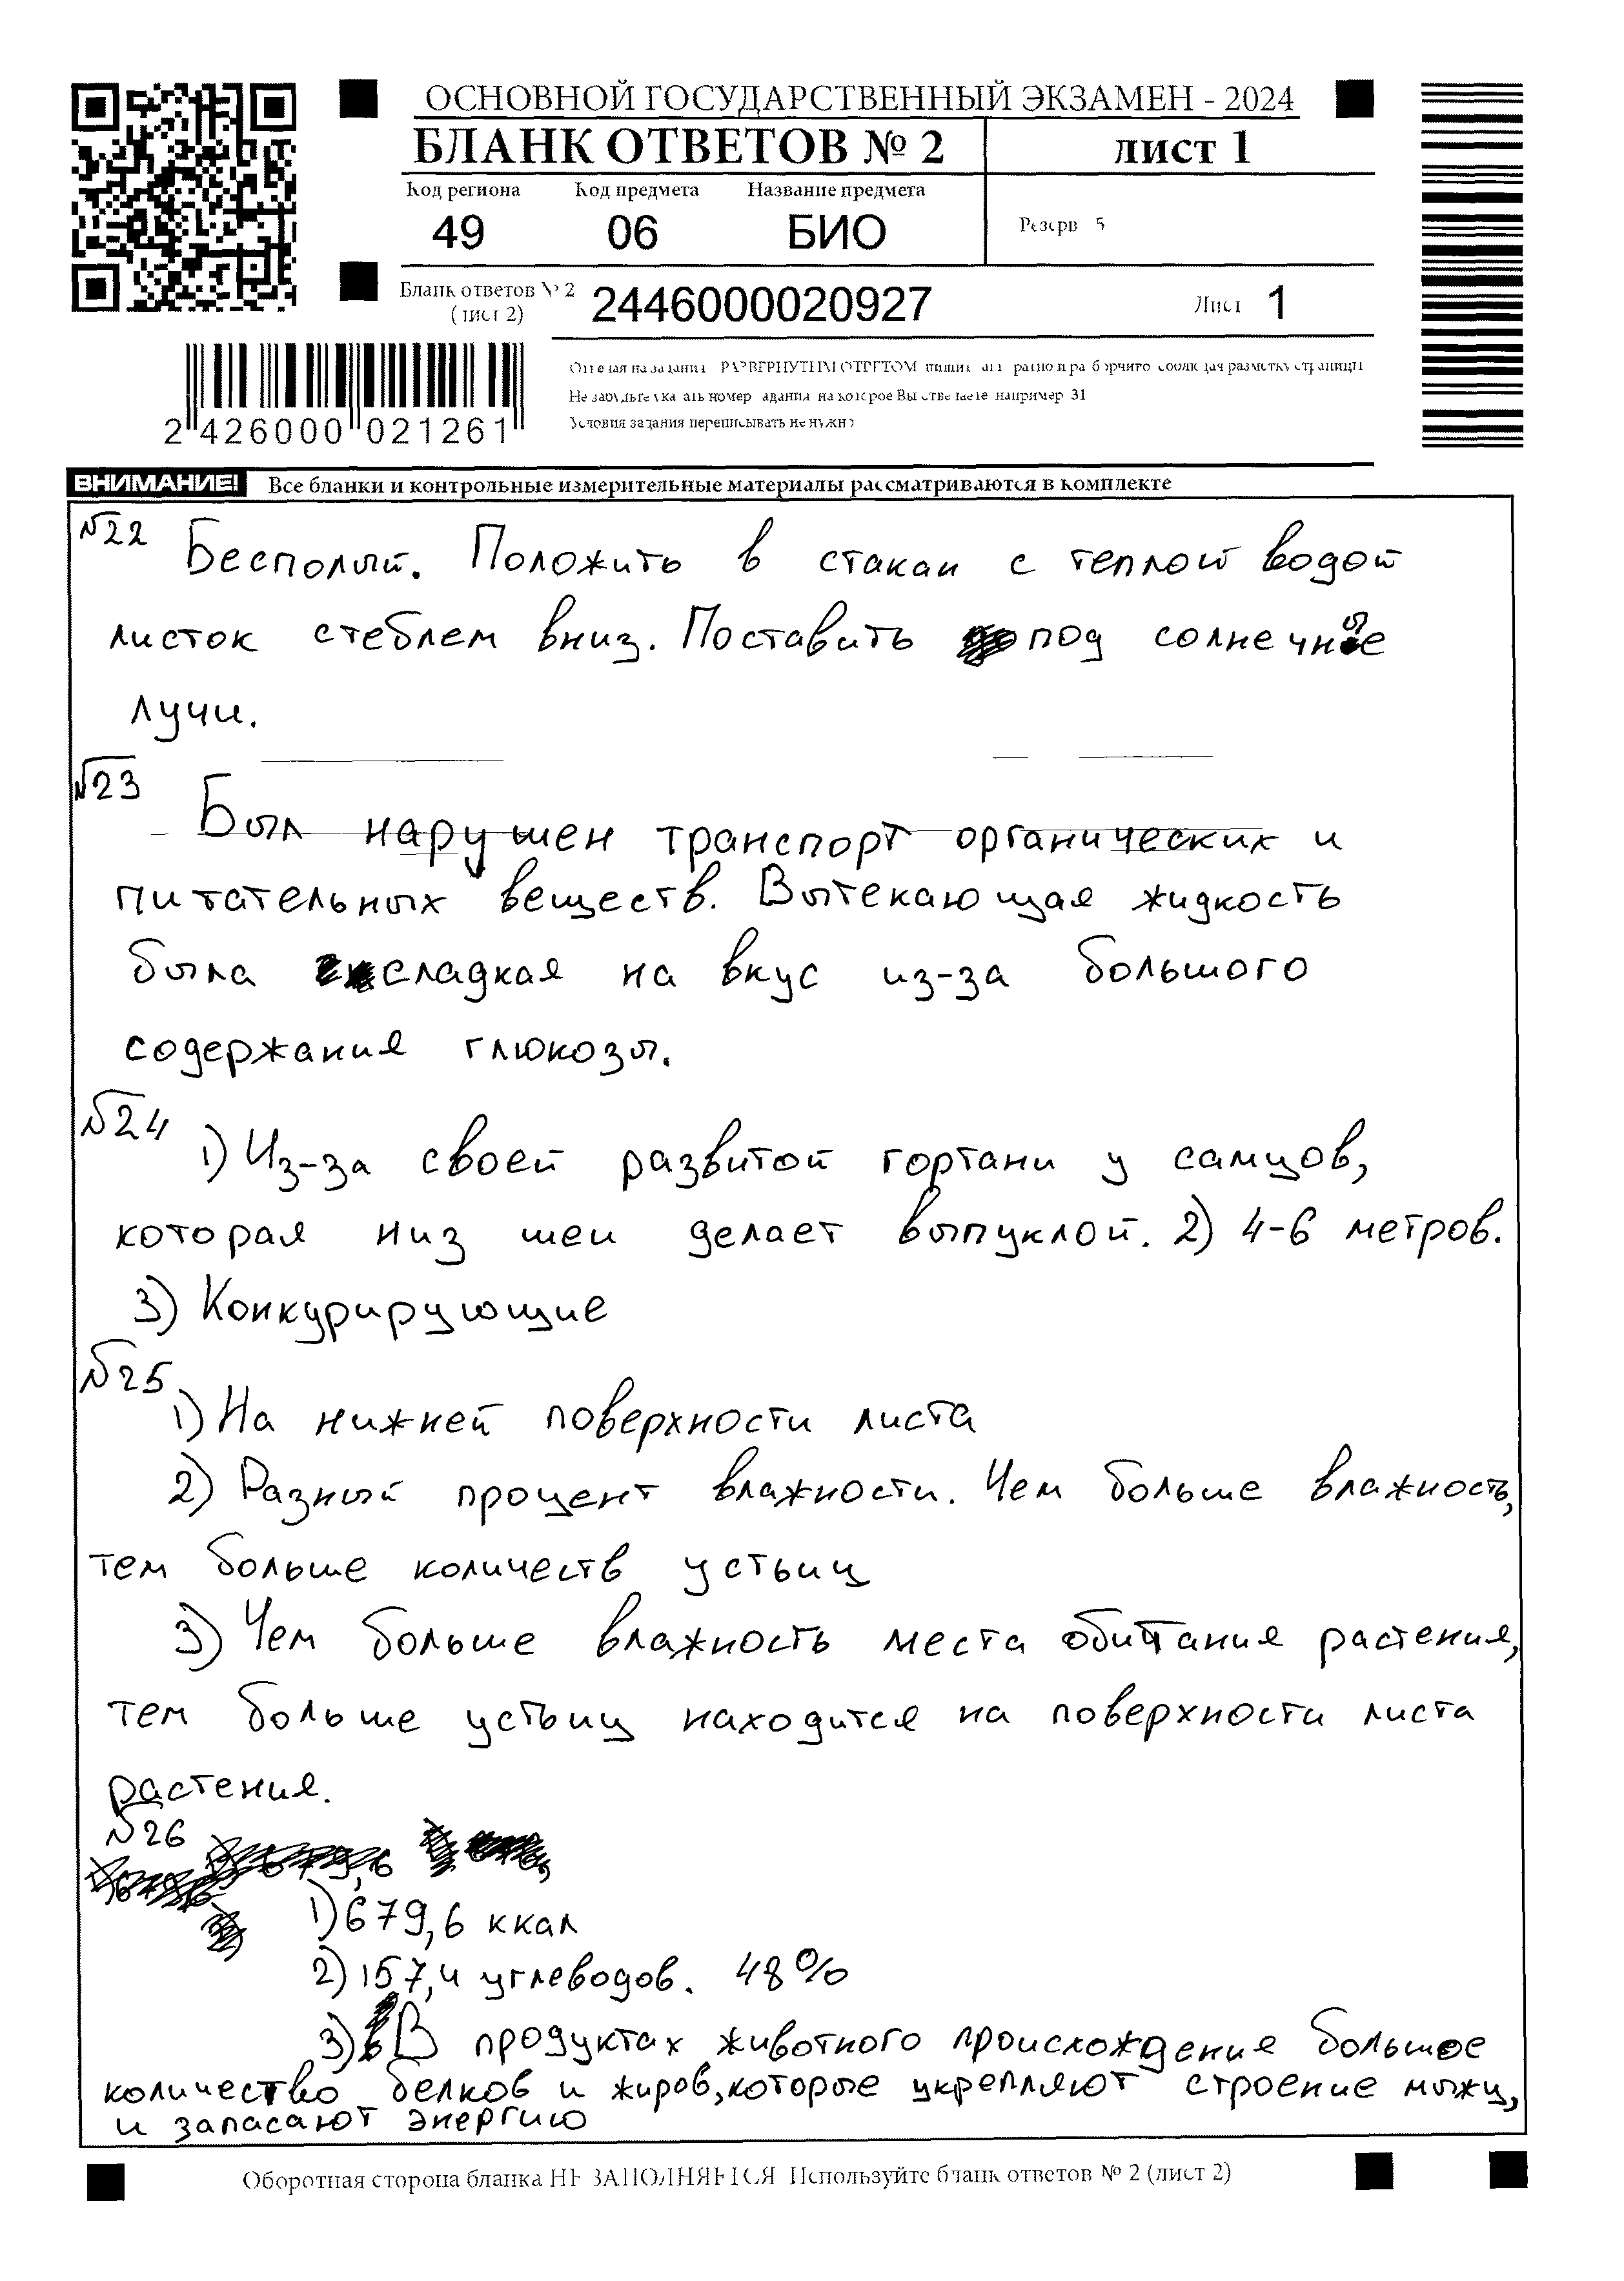 ОСНОВНОЙ ГОСУДАРСТВЕННЫЙ ЭКЗАМЕН - 2024
БЛАНК ОТВЕТОВ № 2
лист 1
Код региона Код предмета Название предмета
49 06 БИО
Резерв 5
Бланк ответов № 2 (лист 2) 2446000020927
Лист 1
2 426000 021261
Отвечая на задания с РАЗВЕРНУТЫМ ОТВЕТОМ, пишите аккуратно и разборчиво, соблюдая разметку страницы
Не забудьте указать номер задания, на которое Вы отвечаете, например 31
Условия задания переписывать не нужно
ВНИМАНИЕ! Все бланки и контрольные измерительные материалы рассматриваются в комплекте
№22 Бесполый. Положить в стакан с теплой водой
листок стеблем вниз. Поставить под солнечные
лучи.
№23 Был нарушен транспорт органических и
питательных веществ. Вытекающая жидкость
была сладкая на вкус из-за большого
содержания глюкозы.
№24 1) Из-за своей развитой гортани у самцов,
которая низ шеи делает выпуклой. 2) 4-6 метров.
3) Конкурирующие
№25 1) На нижней поверхности листа
2) Разный процент влажности. Чем больше влажность,
тем больше количеств устьиц
3) Чем больше влажность места обитания растения,
тем больше устьиц находится на поверхности листа
растения.
№26
1) 679,6 ккал
2) 157,4 углеводов. 48%
3) В продуктах животного происхождения большое
количество белков и жиров, которые укрепляют строение мыжц,
и запасают энергию
Оборотная сторона бланка НЕ ЗАПОЛНЯЕТСЯ. Используйте бланк ответов № 2 (лист 2)